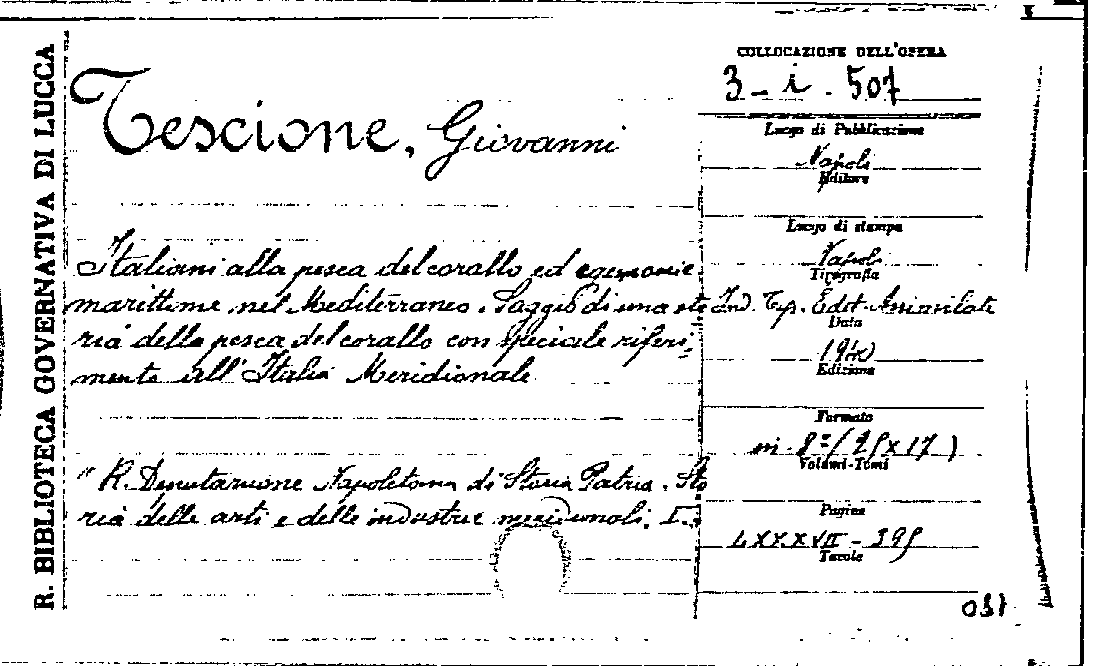 R. BIBLIOTECA GOVERNATIVA DI LUCCA
Tescione, Giovanni
Italiani alla pesca del corallo ed egemonie
marittime nel Mediterraneo. Saggio di una sto
ria della pesca del corallo con speciale riferi-
mento all'Italia Meridionale
" R. Deputazione Napoletana di Storia Patria. Sto
ria delle arti e delle industrie meridionali. I.
COLLOCAZIONE DELL'OPERA
3 - i - 507
Luogo di Pubblicazione
Napoli
Editore
Luogo di stampa
Napoli
Tipografia
Ind. Tip. Edit. Assimilate
Data
1940
Edizione
Formato
in 8° (25 x 17)
Volumi-Tomi
Pagine
LXXXVII - 395
Tavole